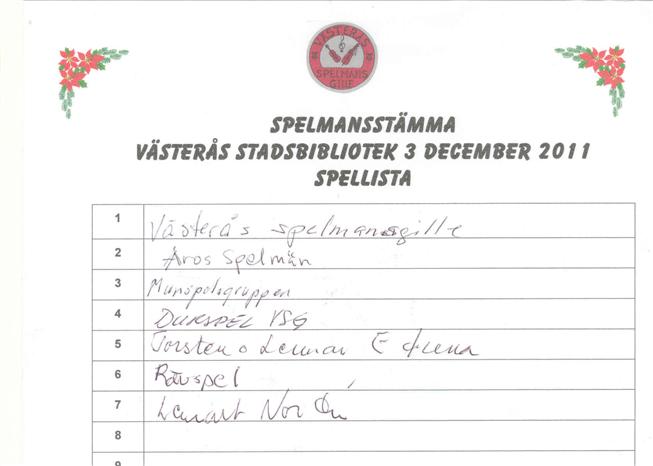 VÄSTERÅS
SPELMANS
GILLE
SPELMANSSTÄMMA
VÄSTERÅS STADSBIBLIOTEK 3 DECEMBER 2011
SPELLISTA
1 Västerås spelmansgille
2 Aros Spelmän
3 Munspelsgruppen
4 DURSPEL VSG
5 Torsten o Lennart E
6 Rävspel
7 Lennart Norén
8
9